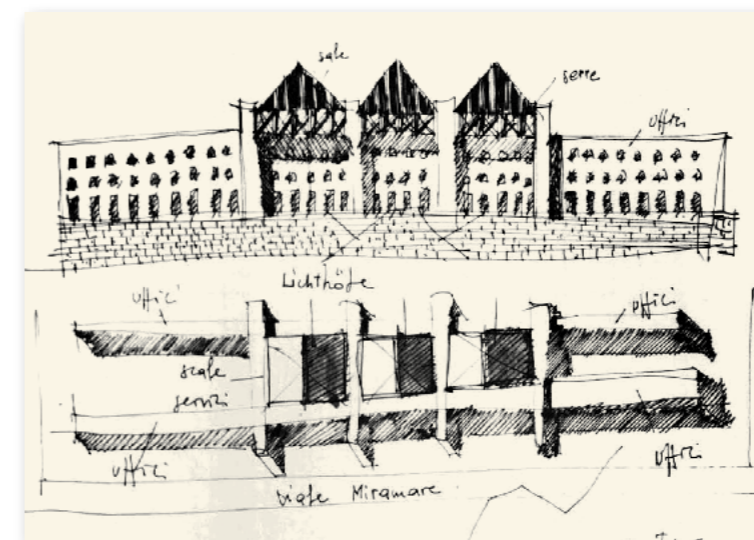 sale
serre
uffici
Lichthöfe
uffici
uffici
scale
servizi
uffici
uffici
viale Miramare